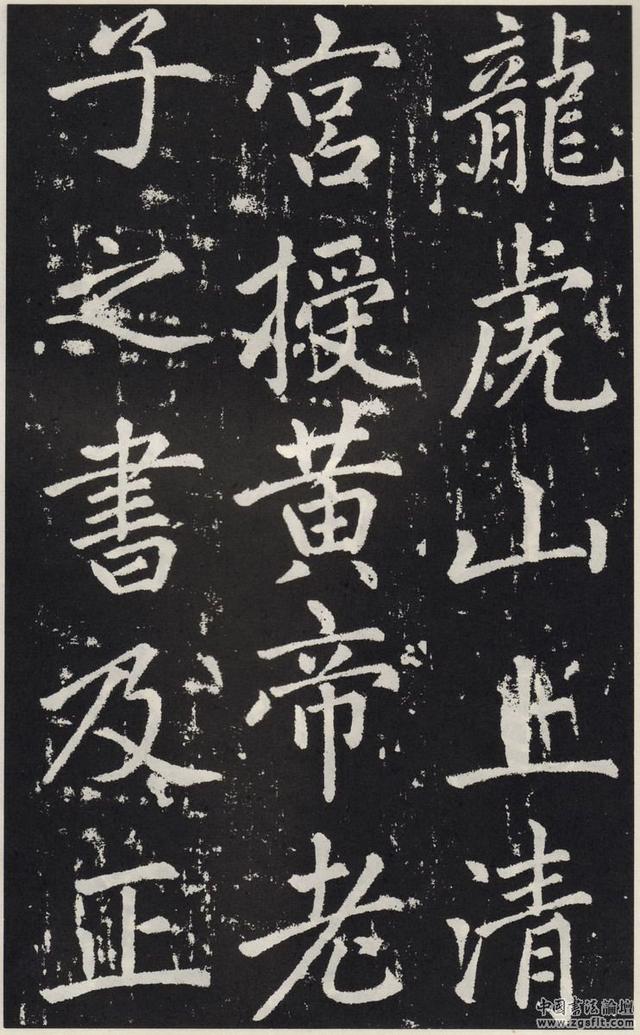 龍虎山上清
宮授黄帝老
子之書及正
中国书法論壇
www.zgsflt.com